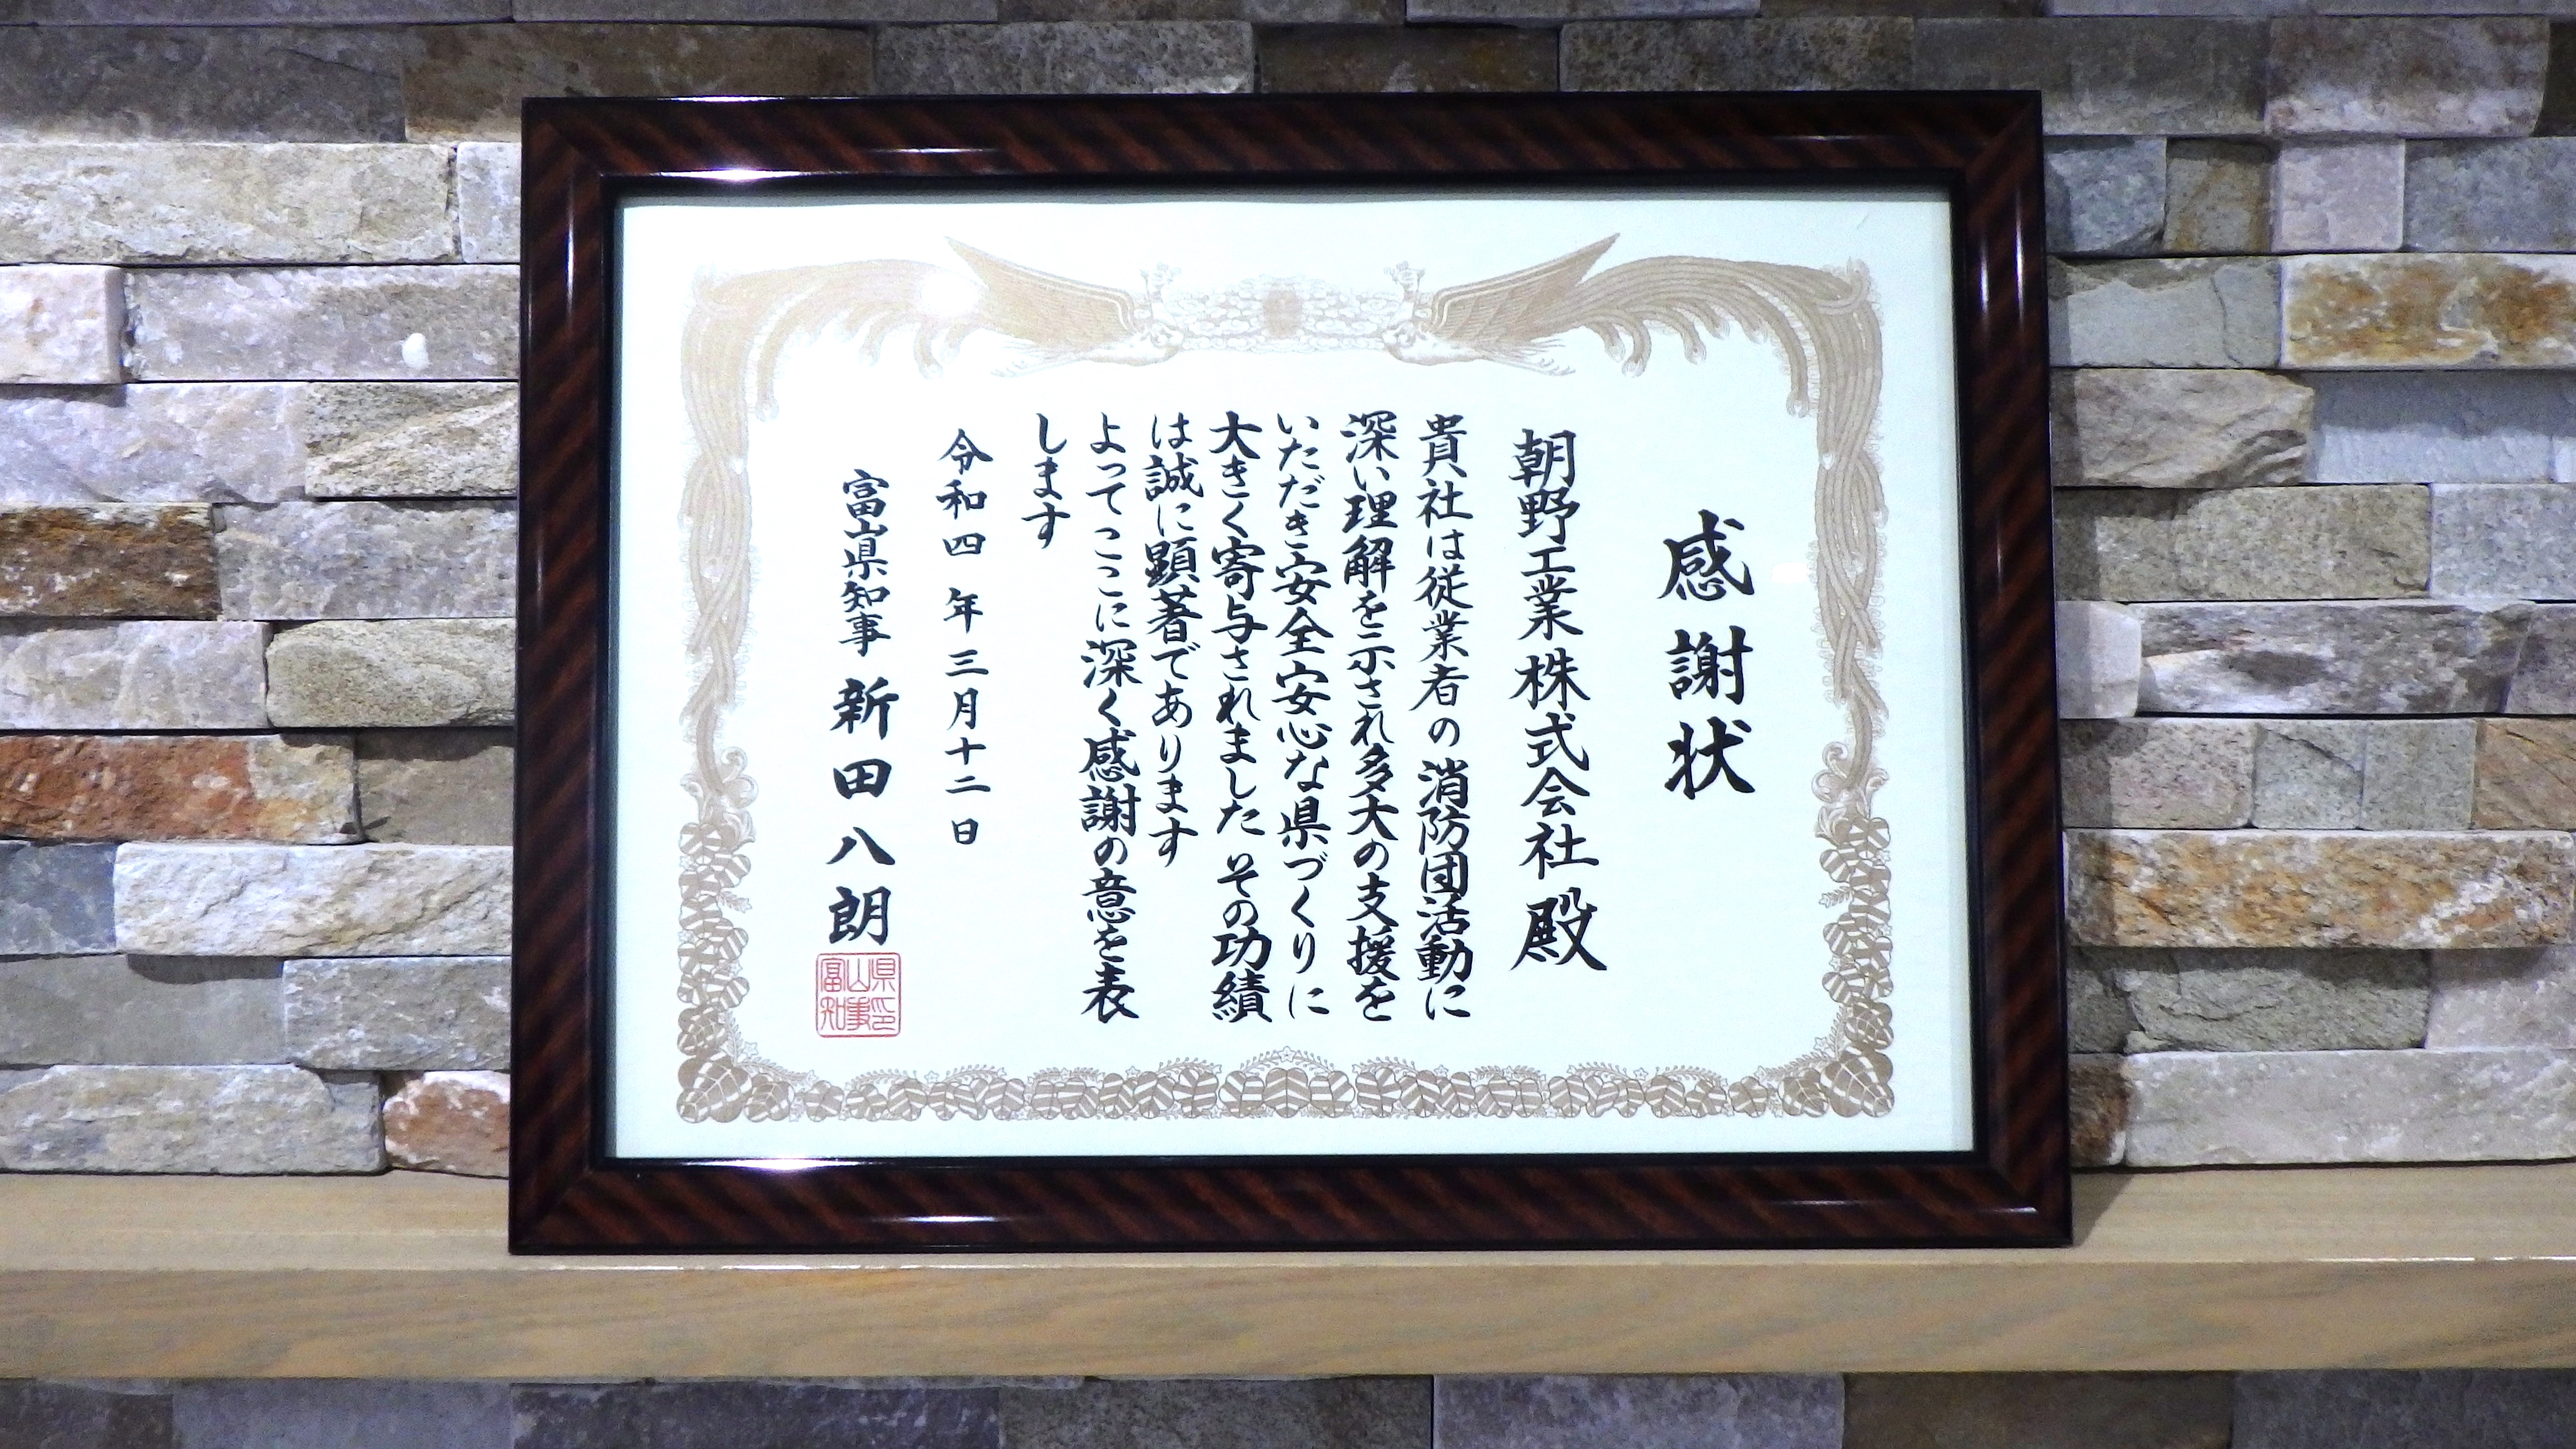 感謝状
朝野工業株式会社殿
貴社は従業者の消防団活動に
深い理解を示され多大の支援を
いただき安全安心な県づくりに
大きく寄与されました その功績
は誠に顕著であります
よってここに深く感謝の意を表
します
令和四年三月十二日
富山県知事 新田八朗
富山県知事印